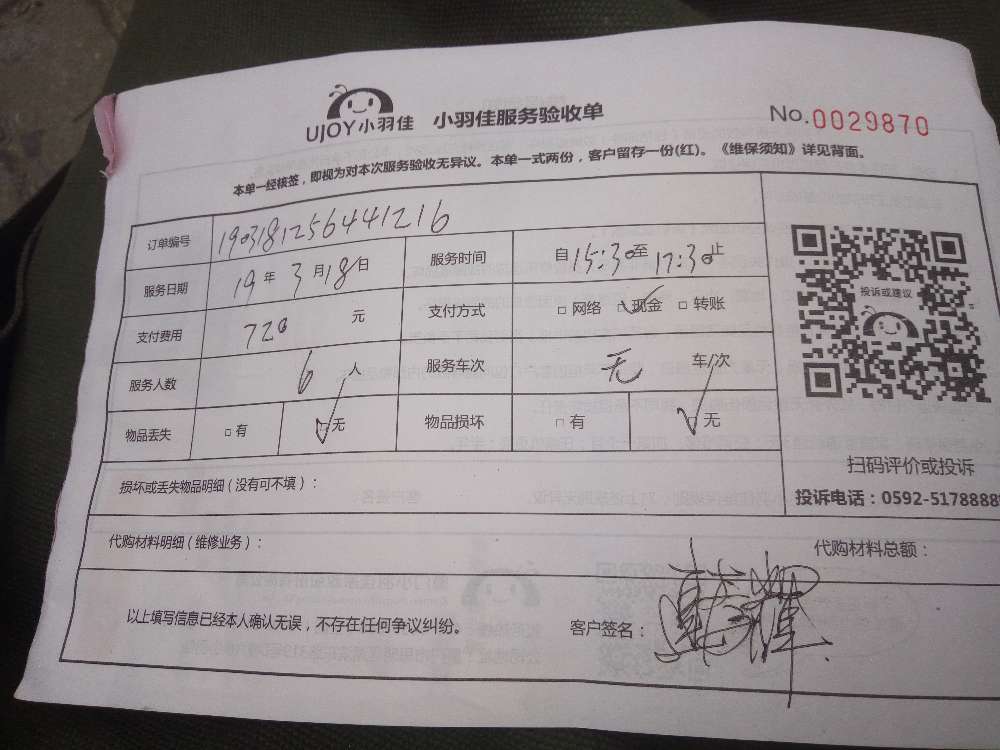 UJOY小羽佳 小羽佳服务验收单 No.0029870
本单一经核签，即视为对本次服务验收无异议。本单一式两份，客户留存一份(红)。《维保须知》详见背面。
订单编号 190318125644 1216
服务日期 19年3月18日 服务时间 自15:30至17:30止
支付费用 720元 支付方式 □网络 □现金 □转账
服务人数 6人 服务车次 无 车/次
物品丢失 □有 □无 物品损坏 □有 □无
投诉或建议
扫码评价或投诉
投诉电话：0592-5178888
损坏或丢失物品明细（没有可不填）：
代购材料明细（维修业务）： 代购材料总额：
以上填写信息已经本人确认无误，不存在任何争议纠纷。 客户签名：